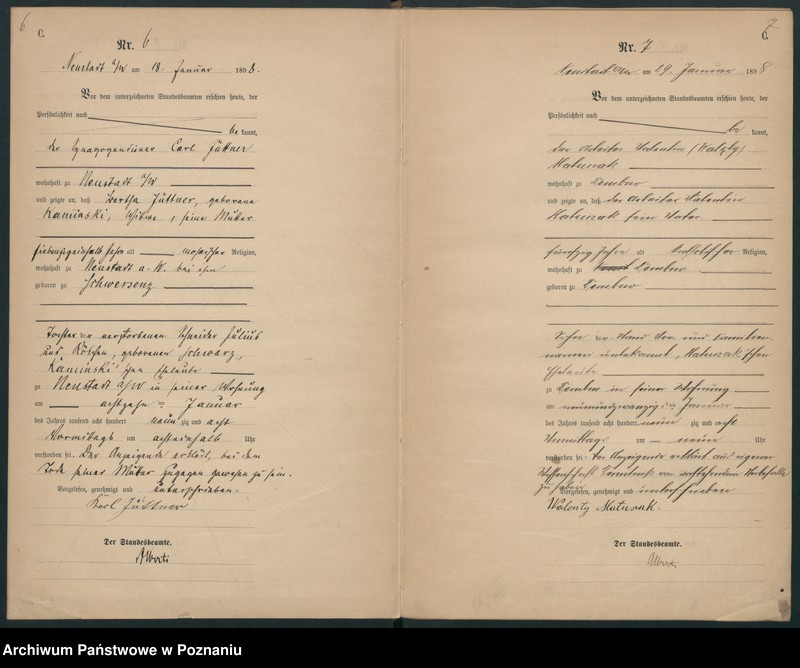 6
C.
Nr. 6
Neustadt a/W am 18. Januar 1898.
Vor dem unterzeichneten Standesbeamten erschien heute, der
Persönlichkeit nach
be kannt,
der Synagogendiener Carl Jüttner
wohnhaft zu Neustadt a/W
und zeigte an, daß Bertha Jüttner, geborene
Kaminski, Wittwe, seine Mutter
siebenzigeinhalb Jahre alt mosaischer Religion,
wohnhaft zu Neustadt a. W. bei ihm
geboren zu Schwersenz
Tochter der verstorbenen Schneider Julius
und Röschen, geborenen Schwarz,
Kaminski'schen Eheleute
zu Neustadt a/W in seiner Wohnung
am achtzehn ten Januar
des Jahres tausend acht hundert neun zig und acht
Vormittags um achteinhalb Uhr
verstorben sei. Der Anzeigende erklärt, bei dem
Tode seiner Mutter zugegen gewesen zu sein.
Vorgelesen, genehmigt und unterschrieben.
Karl Jüttner
Der Standesbeamte.
Alberti
7
C.
Nr. 7
Neustadt a/W am 29. Januar 1898
Vor dem unterzeichneten Standesbeamten erschien heute, der
Persönlichkeit nach
be kannt,
der Arbeiter Valentin (Walenty)
Matuszak
wohnhaft zu Dembno
und zeigte an, daß der Arbeiter Valentin
Matuszak sein Vater
fünfzig Jahre alt katholischer Religion,
wohnhaft zu Dembno
geboren zu Dembno
Sohn der Stand Vor und Familien
namen unbekannt, Matuszak'schen
Eheleute
zu Dembno in seiner Wohnung
am neunundzwanzig ten Januar
des Jahres tausend acht hundert neun zig und acht
Vormittags um neun Uhr
verstorben sei. Der Anzeigende erklärt aus eigener
Wissenschaft Kenntnis von vorstehendem Sterbefalle
zu haben
Vorgelesen, genehmigt und unterschrieben
Walenty Matuszak.
Der Standesbeamte.
Alberti
Archiwum Państwowe w Poznaniu